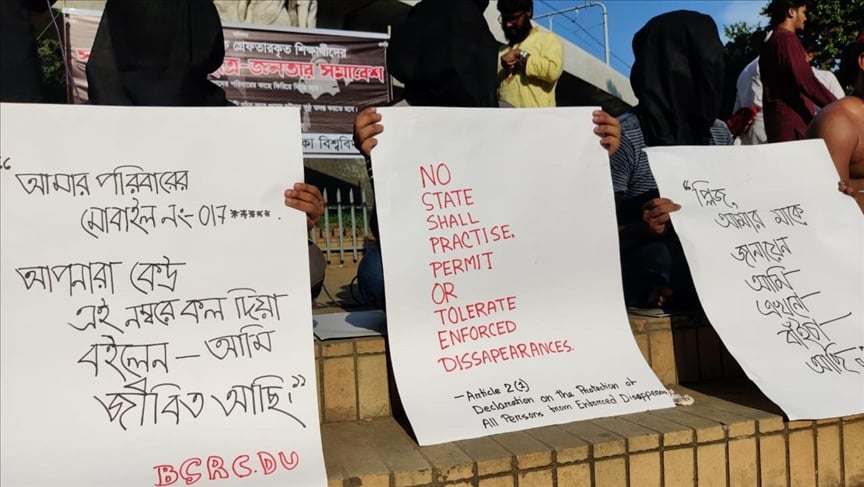 গ্রেফতারকৃত শিক্ষার্থীদের
ছাত্র-জনতার সমাবেশ
“আমার পরিবারের
মোবাইল নং-017*****.
আপনারা কেউ
এই নম্বরে কল দিয়া
বইলেন – আমি
জীবিত আছি।”
BSRC.DU
NO
STATE
SHALL
PRACTISE,
PERMIT
OR
TOLERATE
ENFORCED
DISSAPEARANCES.
—Article 2(1)
Declaration on the Protection of
All Persons from Enforced
“প্লিজ,
আমার মাকে
জানায়েন
আমি
এখনো
বাঁইচা
আছি”